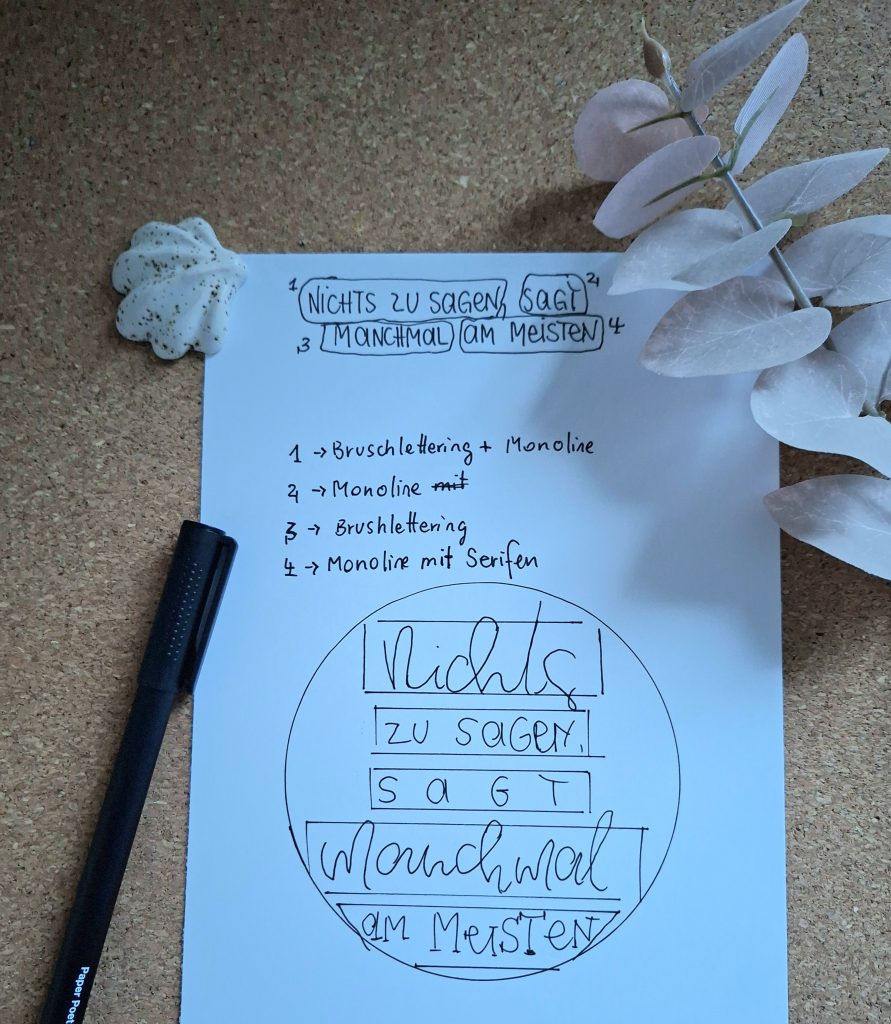 1 NiCHTS ZU SAGEN, SAGT 2
3 MANCHMAL aM MEiSTEN 4
1 → Bruschlettering + Monoline
2 → Monoline mit
3 → Brushlettering
4 → Monoline mit Serifen
Nichts
ZU SAGEN,
S a G T
Manchmal
aM MeiSTeN
Paper Poet